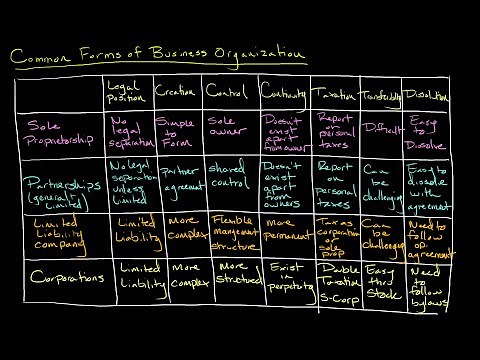 Common Forms of Business Organization
Legal position Creation Control Continuity Taxation Transferability Dissolution
Sole Proprietorship No legal separation Simple to Form Sole owner Doesn't exist apart from owner Report on personal taxes Difficult Easy to Dissolve
Partnerships (general/ Limited) No legal separation unless Limited partner agreement shared control Doesn't exist apart from owners Report on personal taxes Can be challenging Easy to dissolve with agreement
Limited Liability Company Limited Liability More complex Flexible management structure more permanent Tax as corporation or sole prop Can be challenging Need to follow op. agreement
Corporations Limited Liability More complex More structured Exist in perpetuity Double Taxation S-Corp Easy thru Stock Need to follow bylaws